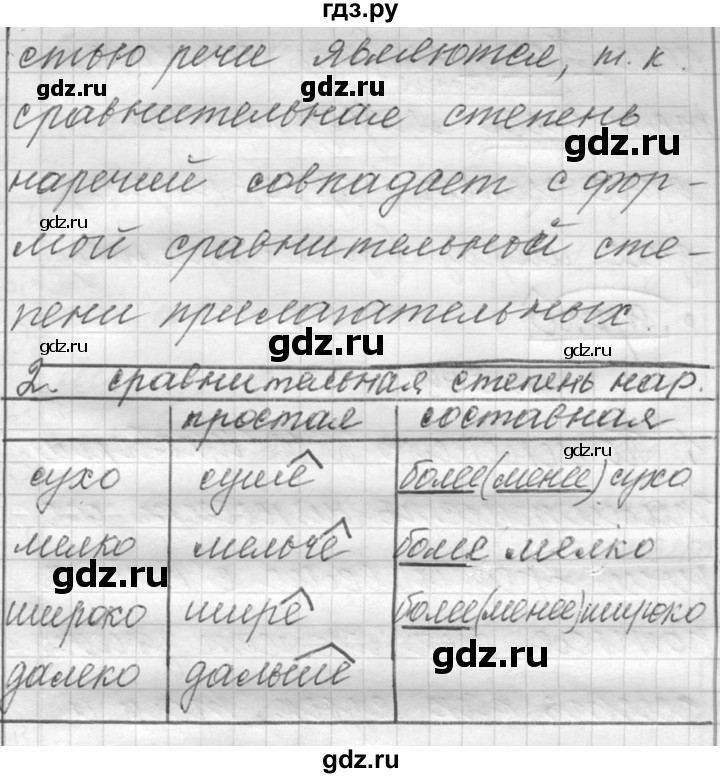 гдз.ру
стью речи являются, т. к.
gdz.ru gdz.ru
сравнительная степень
gdz.ru
наречий совпадает с фор-
gdz.ru
мой сравнительной сте-
пени прилагательных.
gdz.ru gdz.ru
2. сравнительная степень нар.
простая составная
gdz.ru
сухо суше более (менее) сухо
мелко мельче более мелко
gdz.ru
широко шире более (менее) широко
gdz.ru
далеко дальше
gdz.ru